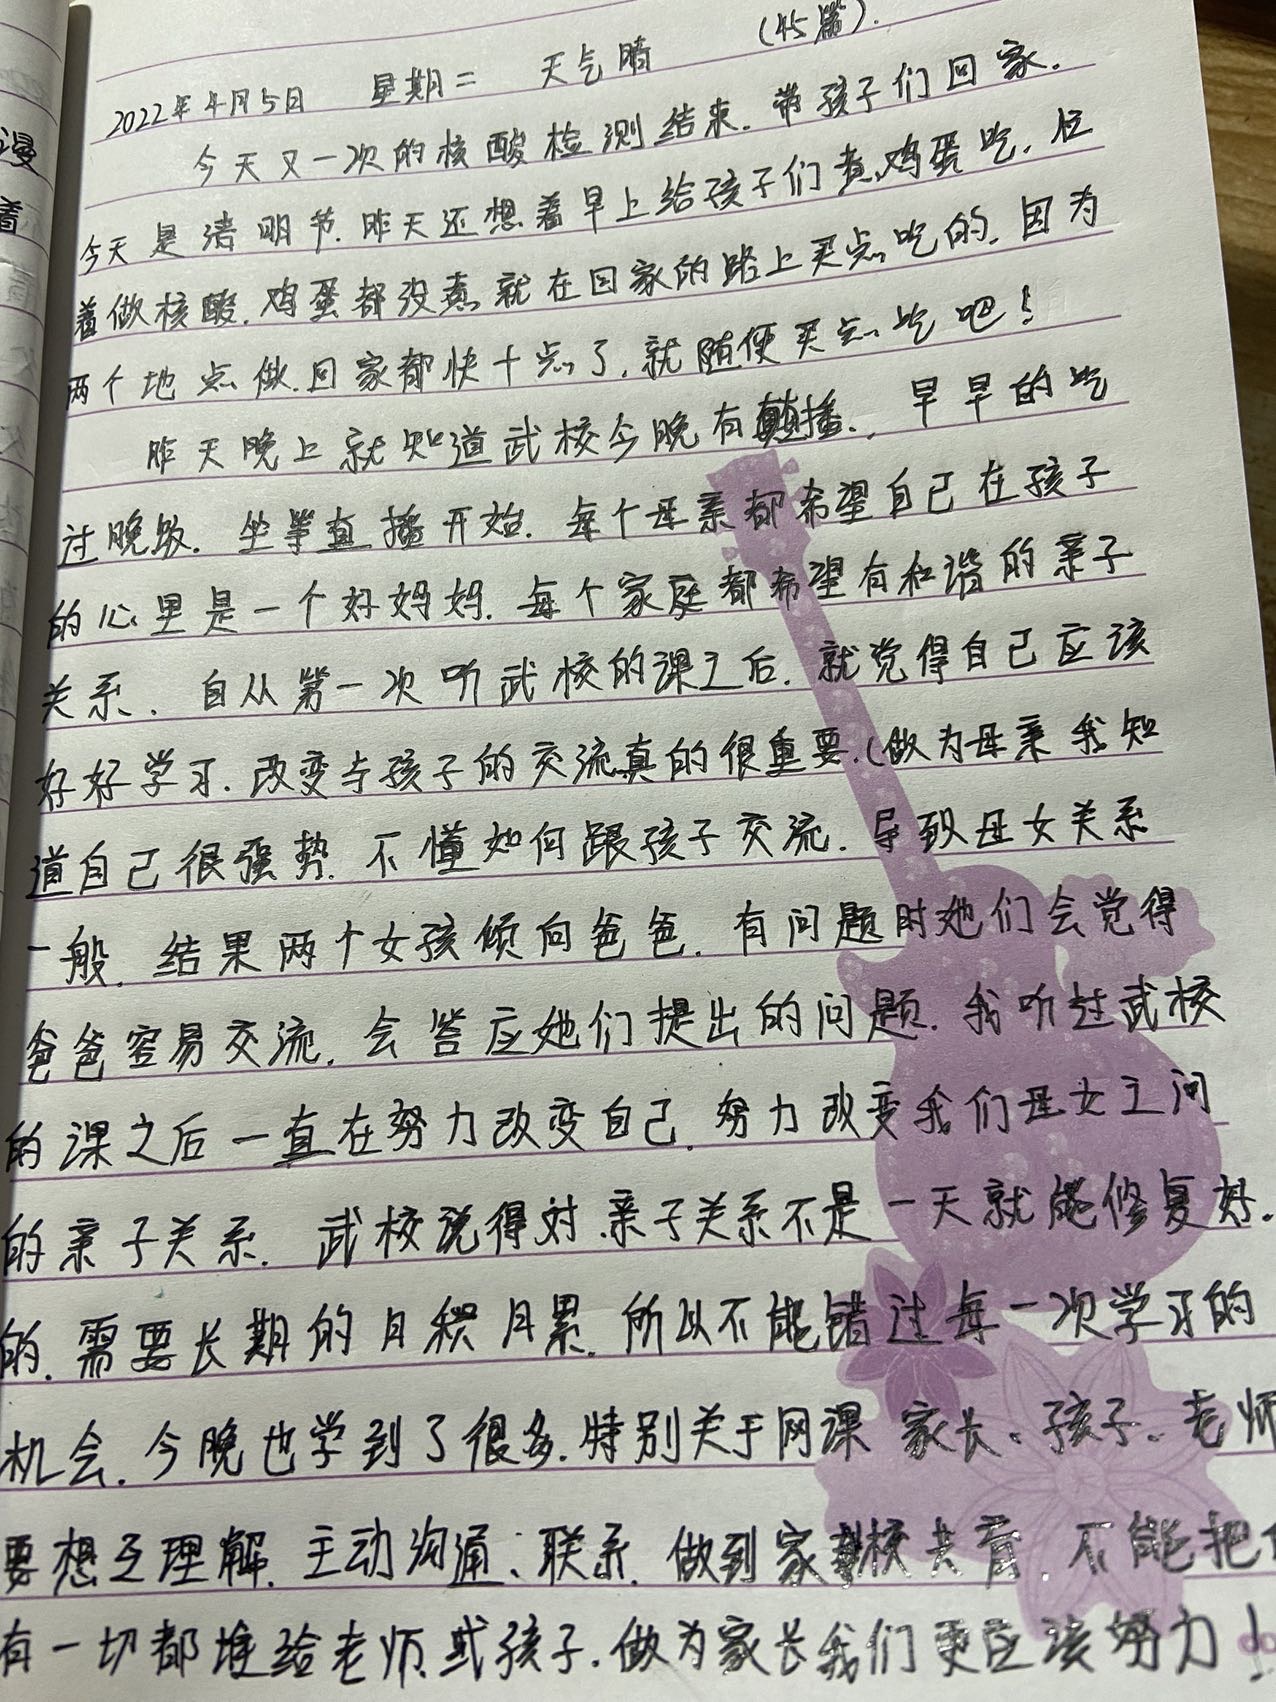 2022年4月5日 星期二 天气晴 (45篇).
今天又一次的核酸检测结束.带孩子们回家.
今天是清明节.昨天还想着早上给孩子们煮鸡蛋吃.忙
着做核酸.鸡蛋都没煮.就在回家的路上买点吃的.因为
两个地点做.回家都快十点了,就随便买点吃吧!
昨天晚上就知道武校今晚有直播.,早早的吃
过晚饭.坐等直播开始.每个母亲都希望自己在孩子
的心里是一个好妈妈.每个家庭都希望有和谐的亲子
关系、自从第一次听武校的课之后.就觉得自己应该
好好学习.改变与孩子的交流真的很重要.(做为母亲我知
道自己很强势.不懂如何跟孩子交流.导致母女关系
一般.结果两个女孩倾向爸爸.有问题时她们会觉得
爸爸容易交流.会答应她们提出的问题.我听过武校
的课之后一直在努力改变自己.努力改变我们母女之间
的亲子关系.武校说得对.亲子关系不是一天就能修复好.
的.需要长期的日积月累.所以不能错过每一次学习的
机会.今晚也学到了很多.特别关于网课 家长、孩子、老师
要想互理解.主动沟通、联系.做到家校共育.不能把
有一切都堆给老师或孩子.做为家长我们更应该努力!